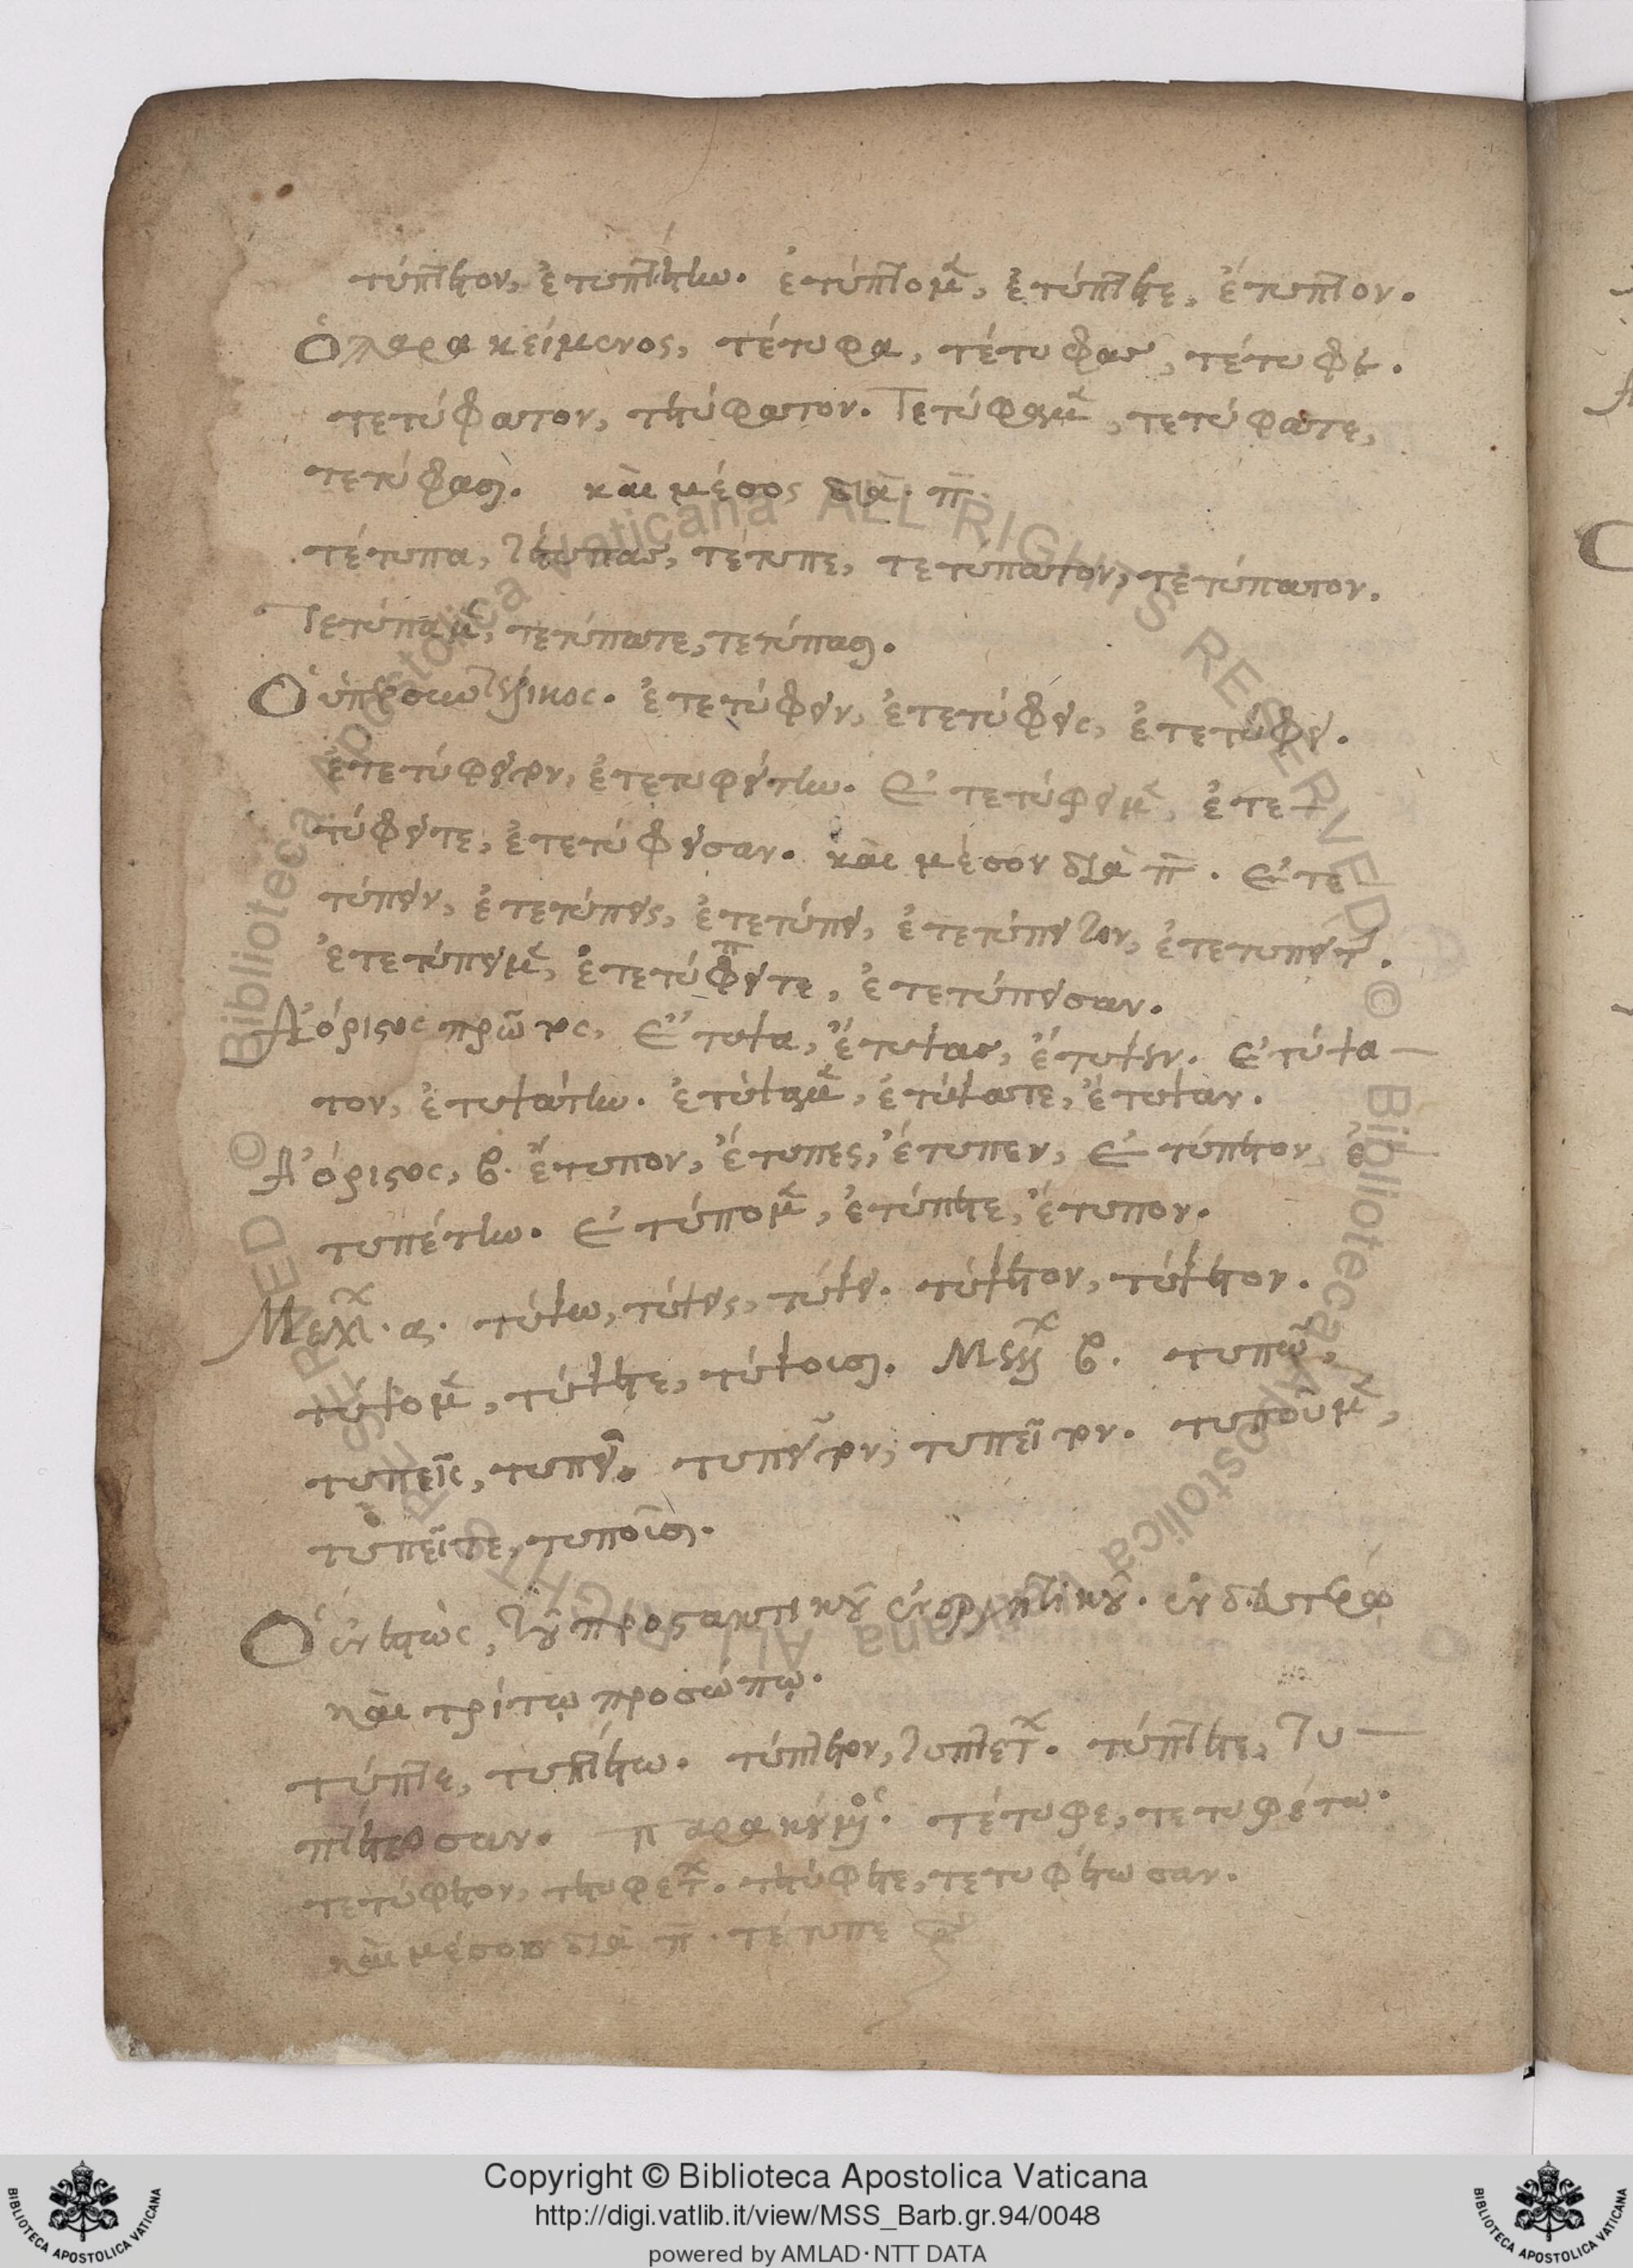 τύπτετον, ἐτυπτέτην. ἐτύπτομ(εν), ἐτύπτετε, ἔτυπτον.
Ὁ παρακείμενος, τέτυφα, τέτυφας, τέτυφε.
τετύφατον, τετύφατον. Τετύφαμ(εν), τετύφατε,
τετύφασι. καὶ μέσος διὰ π̄.
τέτυπα, τέτυπας, τέτυπε, τετύπατον, τετύπατον.
Τετύπαμ(εν), τετύπατε, τετύπασι.
Ὁ ὑπερσυντέλικος. ἐτετύφειν, ἐτετύφεις, ἐτετύφει.
ἐτετύφειτον, ἐτετυφείτην. Ἐτετύφειμ(εν), ἐτε
τύφειτε, ἐτετύφεισαν. καὶ μέσου διὰ π̄. Ἐτε
τύπειν, ἐτετύπεις, ἐτετύπει, ἐτετύπειτον, ἐτετυπείτ(ην).
ἐτετύπειμ(εν), ἐτετύφειτε, ἐτετύπεισαν.
Ἀόριστος πρῶτος, Ἔτυψα, ἔτυψας, ἔτυψεν. Ἐτύψα-
τον, ἐτυψάτην. ἐτύψαμ(εν), ἐτύψατε, ἔτυψαν.
Ἀόριστος, β. ἔτυπον, ἔτυπες, ἔτυπεν, Ἐτύπετον, ἐ-
τυπέτην. Ἐτύπομ(εν), ἐτύπετε, ἔτυπον.
α. τύψω, τύψεις, τύψει. τύψετον, τύψετον.
τύψομ(εν), τύψετε, τύψουσι. β. τυπῶ,
τυπεῖς, τυπεῖ. τυπεῖτον, τυπεῖτον. τυποῦμ(εν),
τυπεῖτε, τυποῦσι.
Ὁ ἐνεστὼς, τοῦ προστακτικοῦ ἐνεργητικοῦ. ἐν δευτέρῳ
καὶ τρίτῳ προσώπῳ.
τύπτε, τυπτέτω. τύπτετον, τυπτέτ(ων). τύπτετε, τυ-
πτέτωσαν. παρακείμ(ενος). τέτυφε, τετυφέτω.
τετύφετον, τετυφέτ(ων). τετύφετε, τετυφέτωσαν.
καὶ μέσου διὰ π̄. τέτυπε
Copyright © Biblioteca Apostolica Vaticana
http://digi.vatlib.it/view/MSS_Barb.gr.94/0048
powered by AMLAD·NTT DATA